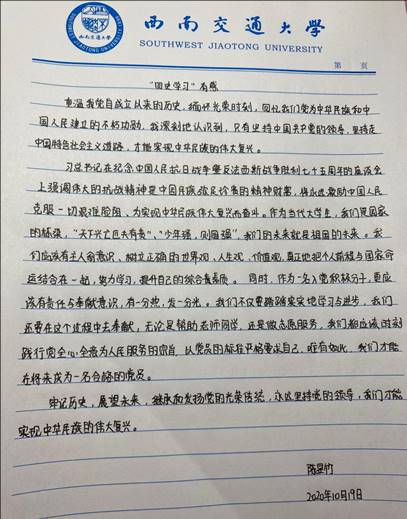 西南交通大学
SOUTHWEST JIAOTONG UNIVERSITY
第 页
“四史学习”有感
重温我党自成立以来的历史，缅怀光荣时刻，回忆我们党为中华民族和中
国人民建立的不朽功勋，我深刻地认识到，只有坚持中国共产党的领导，坚持走
中国特色社会主义道路，才能实现中华民族的伟大复兴。
习总书记在纪念中国人民抗日战争暨反法西斯战争胜利七十五周年的座谈会
上强调伟大的抗战精神是中国人民弥足珍贵的精神财富，将永远激励中国人民
克服一切艰难险阻，为实现中华民族伟大复兴而奋斗。作为当代大学生，我们是国家
的栋梁，“天下兴亡匹夫有责”、“少年强，则国强”，我们的未来就是祖国的未来。我
们应该有主人翁意识、树立正确的世界观、人生观、价值观，真正地把个人前途与国家命
运结合在一起，努力学习，提升自己的综合素质。同时，作为一名入党积极分子，更应
该有责任与奉献意识，有一分热，发一分光。我们不仅要踏踏实实地学习与进步，我们
还要在这个过程中去奉献，无论是帮助老师同学，还是做志愿服务，我们都应该时刻
践行全心全意为人民服务的宗旨，以党员的标准严格要求自己，唯有如此，我们才能
在将来成为一名合格的党员。
牢记历史，展望未来，继承和发扬党的光荣传统，永远坚持党的领导，我们才能
实现中华民族的伟大复兴。
陈昱竹
2020年10月19日